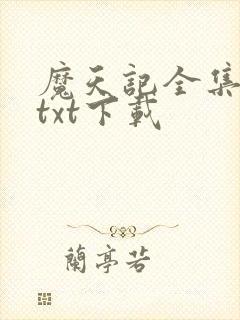 魔天記全集
txt下載
蘭亭若